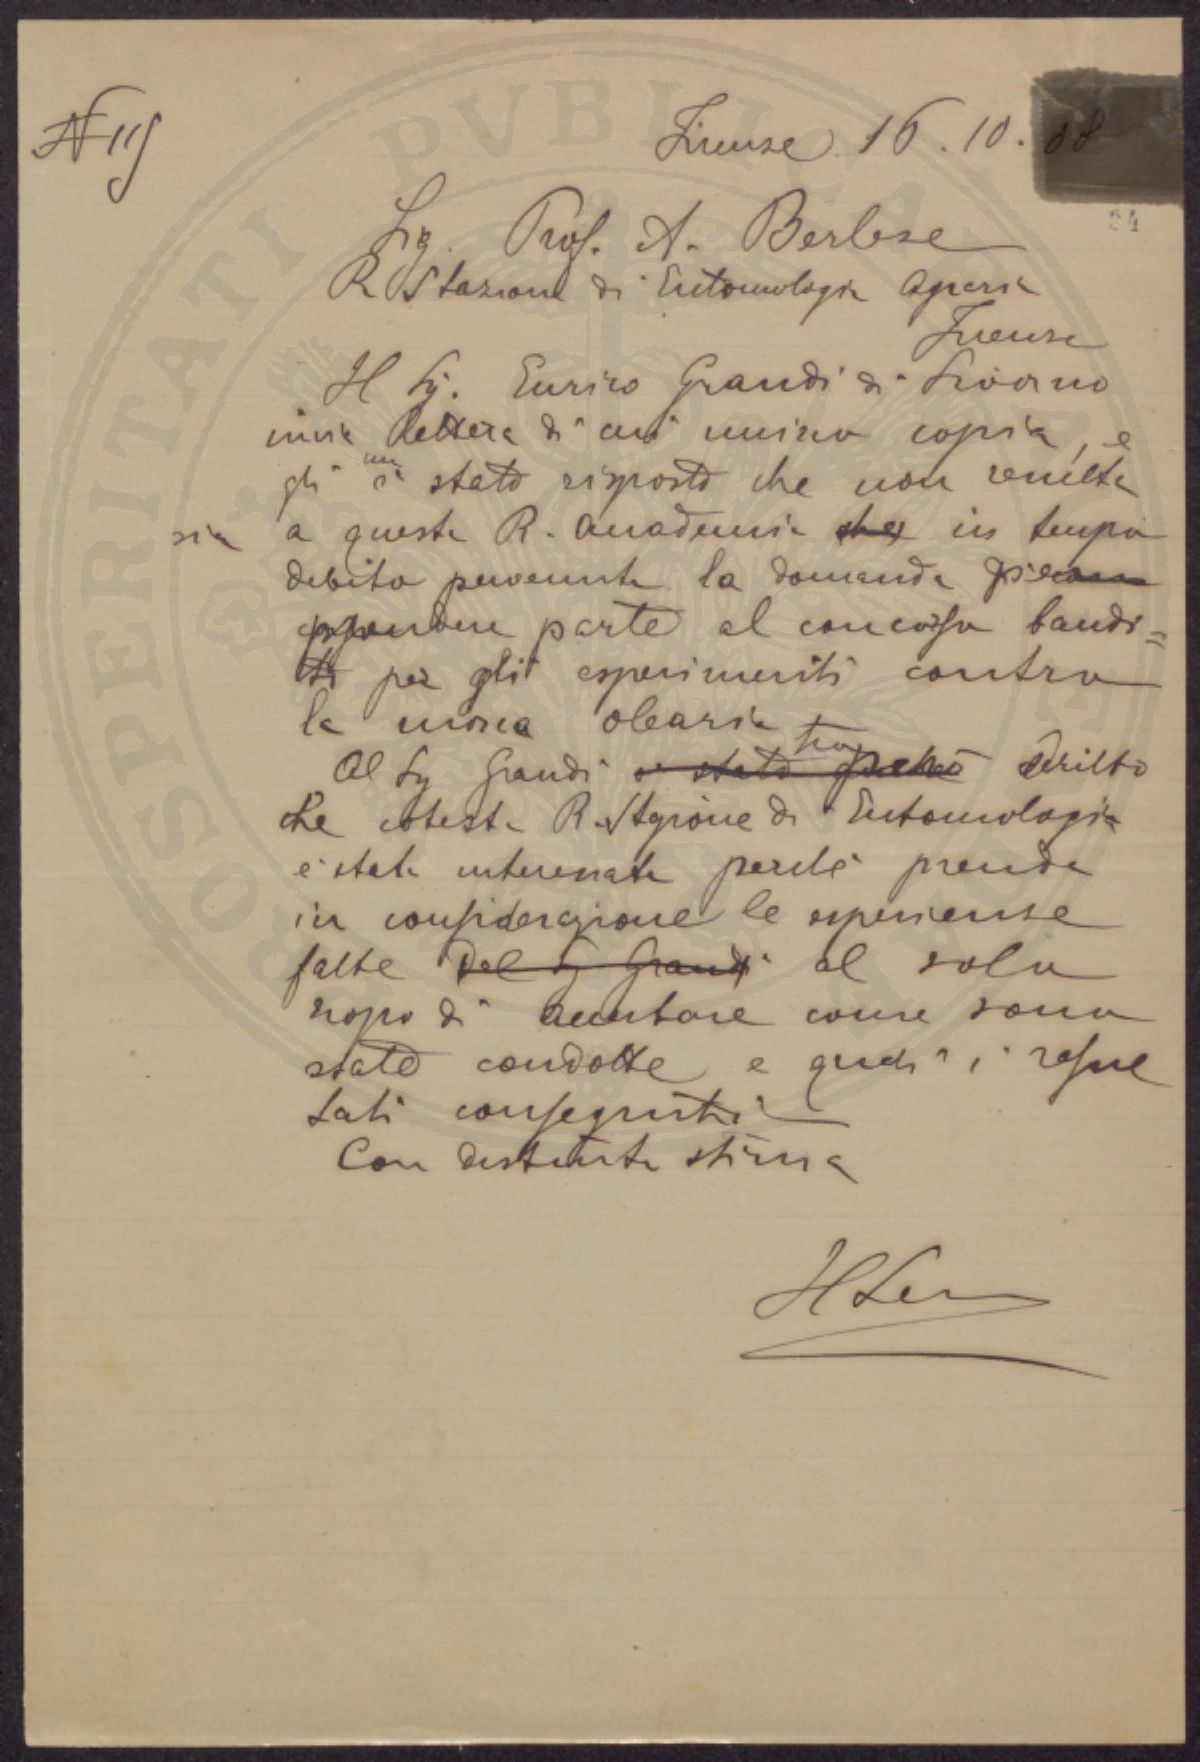 N 115
Firenze 16.10.08
24
Sig. Prof. A. Berlese
R Stazione di Entomologia Agraria
Firenze
Il Sig. Enrico Grandi di Livorno
invia lettera di cui unisco copia, e
gli è stato risposto che non resulta
sia a questa R. Accademia che in tempo
debito pervenuta la domanda
prendere parte al concorso bandi=
to per gli esperimenti contro
la mosca olearia
Al Sig Grandi è stato però scritto
che cotesta R. Stazione di Entomologia
è stata interessata perchè prenda
in considerazione le esperienze
fatte dal Sig Grandi al solo
scopo di accertare come sono
state condotte e quali i resul
tati conseguiti
Con distinta stima
PVBLICAE
PROSPERITATI